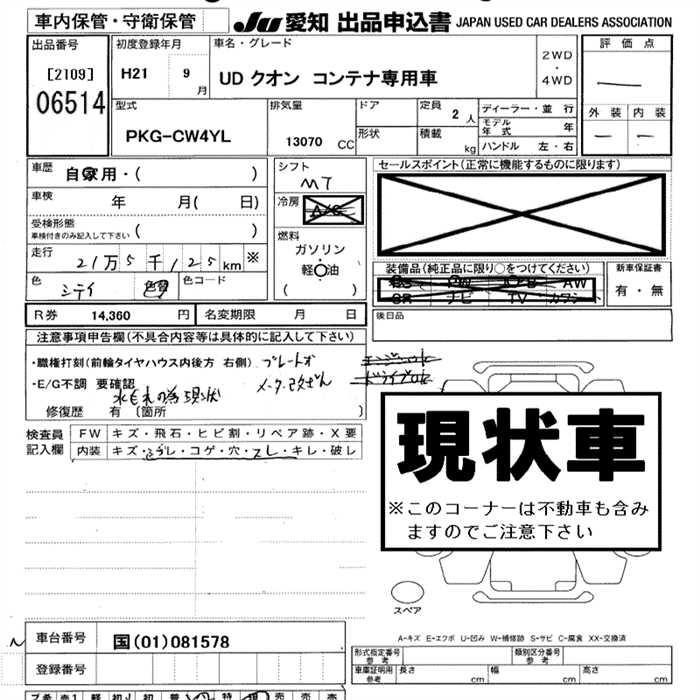 車内保管・守衛保管
JU 愛知 出品申込書 JAPAN USED CAR DEALERS ASSOCIATION
出品番号
[2109]
06514
初度登録年月
H21 9月
車名・グレード
UD クオン コンテナ専用車
2WD
・
4WD
評価点
外装 内装
型式
PKG-CW4YL
排気量
13070 CC
ドア
形状
定員 2人
積載 kg
ディーラー・並行
モデル年式 年
ハンドル 左・右
車歴 自家用・( )
車検 年 月( 日)
受検形態
車検付きのみ記入して下さい ( )
走行 21万5千125km ※
色 シテイ 色替 色コード
R券 14,360 円 名変期限 月 日
シフト
MT
冷房 A/C
燃料
ガソリン
軽○油
( )
セールスポイント(正常に機能するものに限ります)
装備品(純正品に限り○をつけてください)
AW
SR ナビ TV カワシート
新車保証書
有・無
後日品
注意事項申告欄(不具合内容等は具体的に記入して下さい)
・職権打刻(前輪タイヤハウス内後方 右側) プレートオ
・E/G不調 要確認
修復歴 有 (箇所 )
検査員
記入欄
FW キズ・飛石・ヒビ割・リペア跡・X要
内装 キズ・シブレ・コゲ・穴・スレ・キレ・破レ
現状車
※このコーナーは不動車も含み
ますのでご注意下さい
スペア
A-キズ E-エクボ U-凹み W-補修跡 S-サビ C-腐食 XX-交換済
車台番号 国(01)081578
登録番号
形式指定番号
参考
類別区分番号
参考
車庫証明用
参考
長さ cm 幅 cm 高さ cm